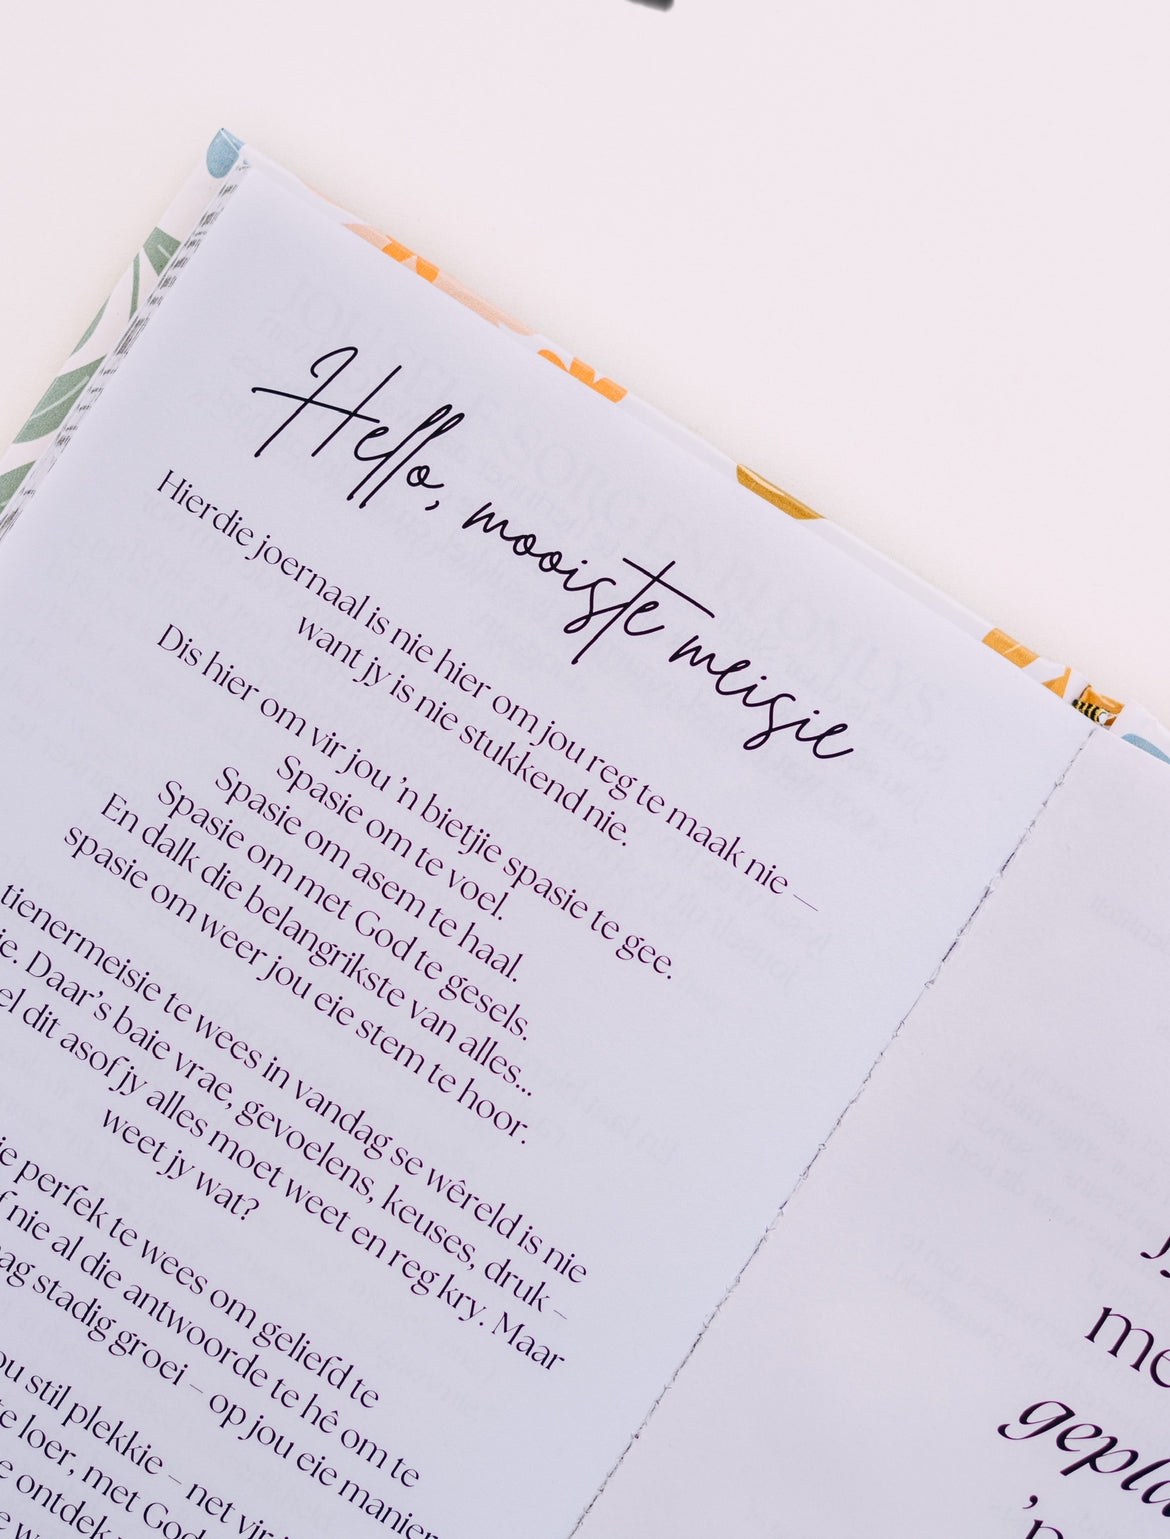 Hello, mooiste meisie
Hierdie joernaal is nie hier om jou reg te maak nie –
want jy is nie stukkend nie.
Dis hier om vir jou 'n bietjie spasie te gee.
Spasie om te voel.
Spasie om asem te haal.
Spasie om met God te gesels.
En dalk die belangrikste van alles...
spasie om weer jou eie stem te hoor.
tienermeisie te wees in vandag se wêreld is nie
Daar's baie vrae, gevoelens, keuses, druk –
dit asof jy alles moet weet en reg kry. Maar
weet jy wat?
perfek te wees om geliefd te
nie al die antwoorde te hê om te
stadig groei – op jou eie manier
stil plekkie – net vir
te loer, met God
ontdek
'n